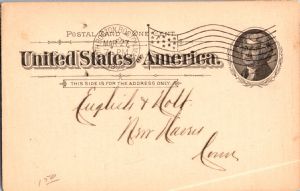 POSTAL CARD ONE CENT
United States of America.
THIS SIDE IS FOR THE ADDRESS ONLY.
English & Holt
New Haven
Conn